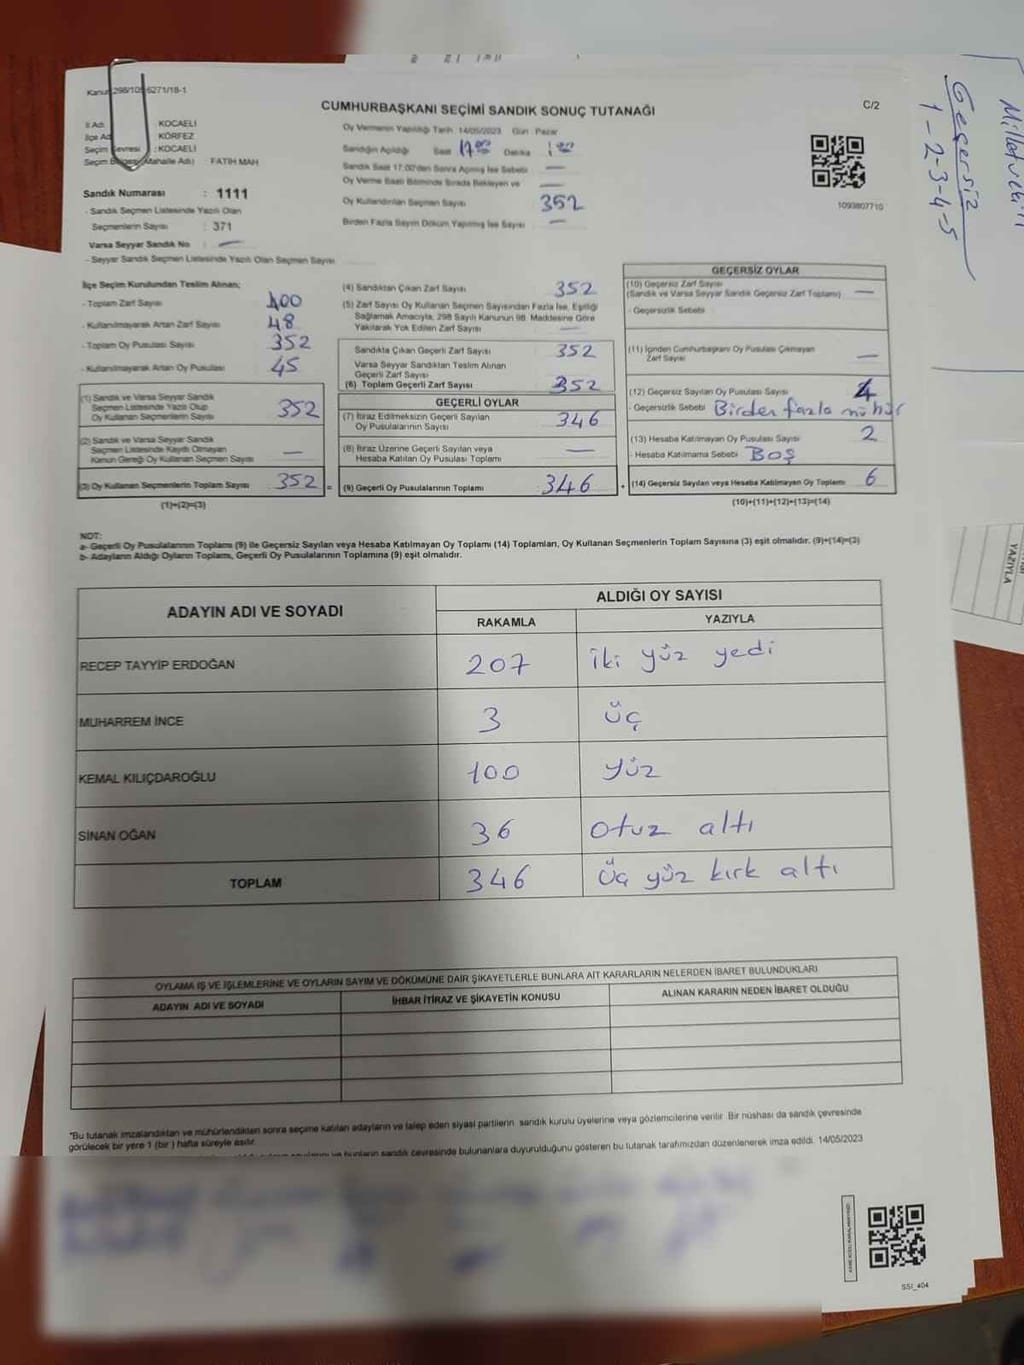 Kanun 298/105 6271/18-1
CUMHURBAŞKANI SEÇİMİ SANDIK SONUÇ TUTANAĞI
C/2
İl Adı KOCAELİ
İlçe Adı KÖRFEZ
Seçim Çevresi : KOCAELİ
Seçim Bölgesi (Mahalle Adı) FATİH MAH
Sandık Numarası : 1111
- Sandık Seçmen Listesinde Yazılı Olan
Seçmenlerin Sayısı : 371
Varsa Seyyar Sandık No : —
- Seyyar Sandık Seçmen Listesinde Yazılı Olan Seçmen Sayısı
Oy Vermenin Yapıldığı Tarih 14/05/2023 Gün Pazar
Sandığın Açıldığı Saat 17 00 Dakika
Sandık Saat 17:00'den Sonra Açılmış İse Sebebi —
Oy Verme Saati Bitiminde Sırada Bekleyen ve —
Oy Kullandırılan Seçmen Sayısı 352
Birden Fazla Sayım Döküm Yapılmış İse Sayısı —
1093807710
İlçe Seçim Kurulundan Teslim Alınan;
- Toplam Zarf Sayısı 400
- Kullanılmayarak Artan Zarf Sayısı 48
- Toplam Oy Pusulası Sayısı 352
- Kullanılmayarak Artan Oy Pusulası 45
(1) Sandık ve Varsa Seyyar Sandık
Seçmen Listesinde Yazılı Olup
Oy Kullanan Seçmenlerin Sayısı 352
(2) Sandık ve Varsa Seyyar Sandık
Seçmen Listesinde Kaydı Olmayan
Kanun Gereği Oy Kullanan Seçmen Sayısı —
(3) Oy Kullanan Seçmenlerin Toplam Sayısı 352 =
(1)+(2)=(3)
(4) Sandıktan Çıkan Zarf Sayısı 352
(5) Zarf Sayısı Oy Kullanan Seçmen Sayısından Fazla İse, Eşitliği
Sağlamak Amacıyla, 298 Sayılı Kanunun 98. Maddesine Göre
Yakılarak Yok Edilen Zarf Sayısı —
Sandıkta Çıkan Geçerli Zarf Sayısı 352
Varsa Seyyar Sandıktan Teslim Alınan
Geçerli Zarf Sayısı —
(6) Toplam Geçerli Zarf Sayısı 352
GEÇERLİ OYLAR
(7) İtiraz Edilmeksizin Geçerli Sayılan
Oy Pusulalarının Sayısı 346
(8) İtiraz Üzerine Geçerli Sayılan veya
Hesaba Katılan Oy Pusulası Toplamı —
(9) Geçerli Oy Pusulalarının Toplamı 346 +
GEÇERSİZ OYLAR
(10) Geçersiz Zarf Sayısı
(Sandık ve Varsa Seyyar Sandık Geçersiz Zarf Toplamı) —
- Geçersizlik Sebebi
(11) İçinden Cumhurbaşkanı Oy Pusulası Çıkmayan
Zarf Sayısı —
(12) Geçersiz Sayılan Oy Pusulası Sayısı 4
- Geçersizlik Sebebi Birden fazla mühür
(13) Hesaba Katılmayan Oy Pusulası Sayısı 2
- Hesaba Katılmama Sebebi BOŞ
(14) Geçersiz Sayılan veya Hesaba Katılmayan Oy Toplamı 6
(10)+(11)+(12)+(13)=(14)
NOT:
a- Geçerli Oy Pusulalarının Toplamı (9) ile Geçersiz Sayılan veya Hesaba Katılmayan Oy Toplamı (14) Toplamları, Oy Kullanan Seçmenlerin Toplam Sayısına (3) eşit olmalıdır. (9)+(14)=(3)
b- Adayların Aldığı Oyların Toplamı, Geçerli Oy Pusulalarının Toplamına (9) eşit olmalıdır.
ADAYIN ADI VE SOYADI
ALDIĞI OY SAYISI
RAKAMLA YAZIYLA
RECEP TAYYİP ERDOĞAN 207 iki yüz yedi
MUHARREM İNCE 3 üç
KEMAL KILIÇDAROĞLU 100 yüz
SİNAN OĞAN 36 otuz altı
TOPLAM 346 üç yüz kırk altı
OYLAMA İŞ VE İŞLEMLERİNE VE OYLARIN SAYIM VE DÖKÜMÜNE DAİR ŞİKAYETLERLE BUNLARA AİT KARARLARIN NELERDEN İBARET BULUNDUKLARI
ADAYIN ADI VE SOYADI İHBAR İTİRAZ VE ŞİKAYETİN KONUSU ALINAN KARARIN NEDEN İBARET OLDUĞU
*Bu tutanak imzalandıktan ve mühürlendikten sonra seçime katılan adayların ve talep eden siyasi partilerin sandık kurulu üyelerine veya gözlemcilerine verilir. Bir nüshası da sandık çevresinde
görülecek bir yere 1 (bir) hafta süreyle asılır.
ve bunların sandık çevresinde bulunanlara duyurulduğunu gösteren bu tutanak tarafımızdan düzenlenerek imza edildi. 14/05/2023
SSI_404
Milletvekili
Geçersiz
1-2-3-4-5
YAZIYLA